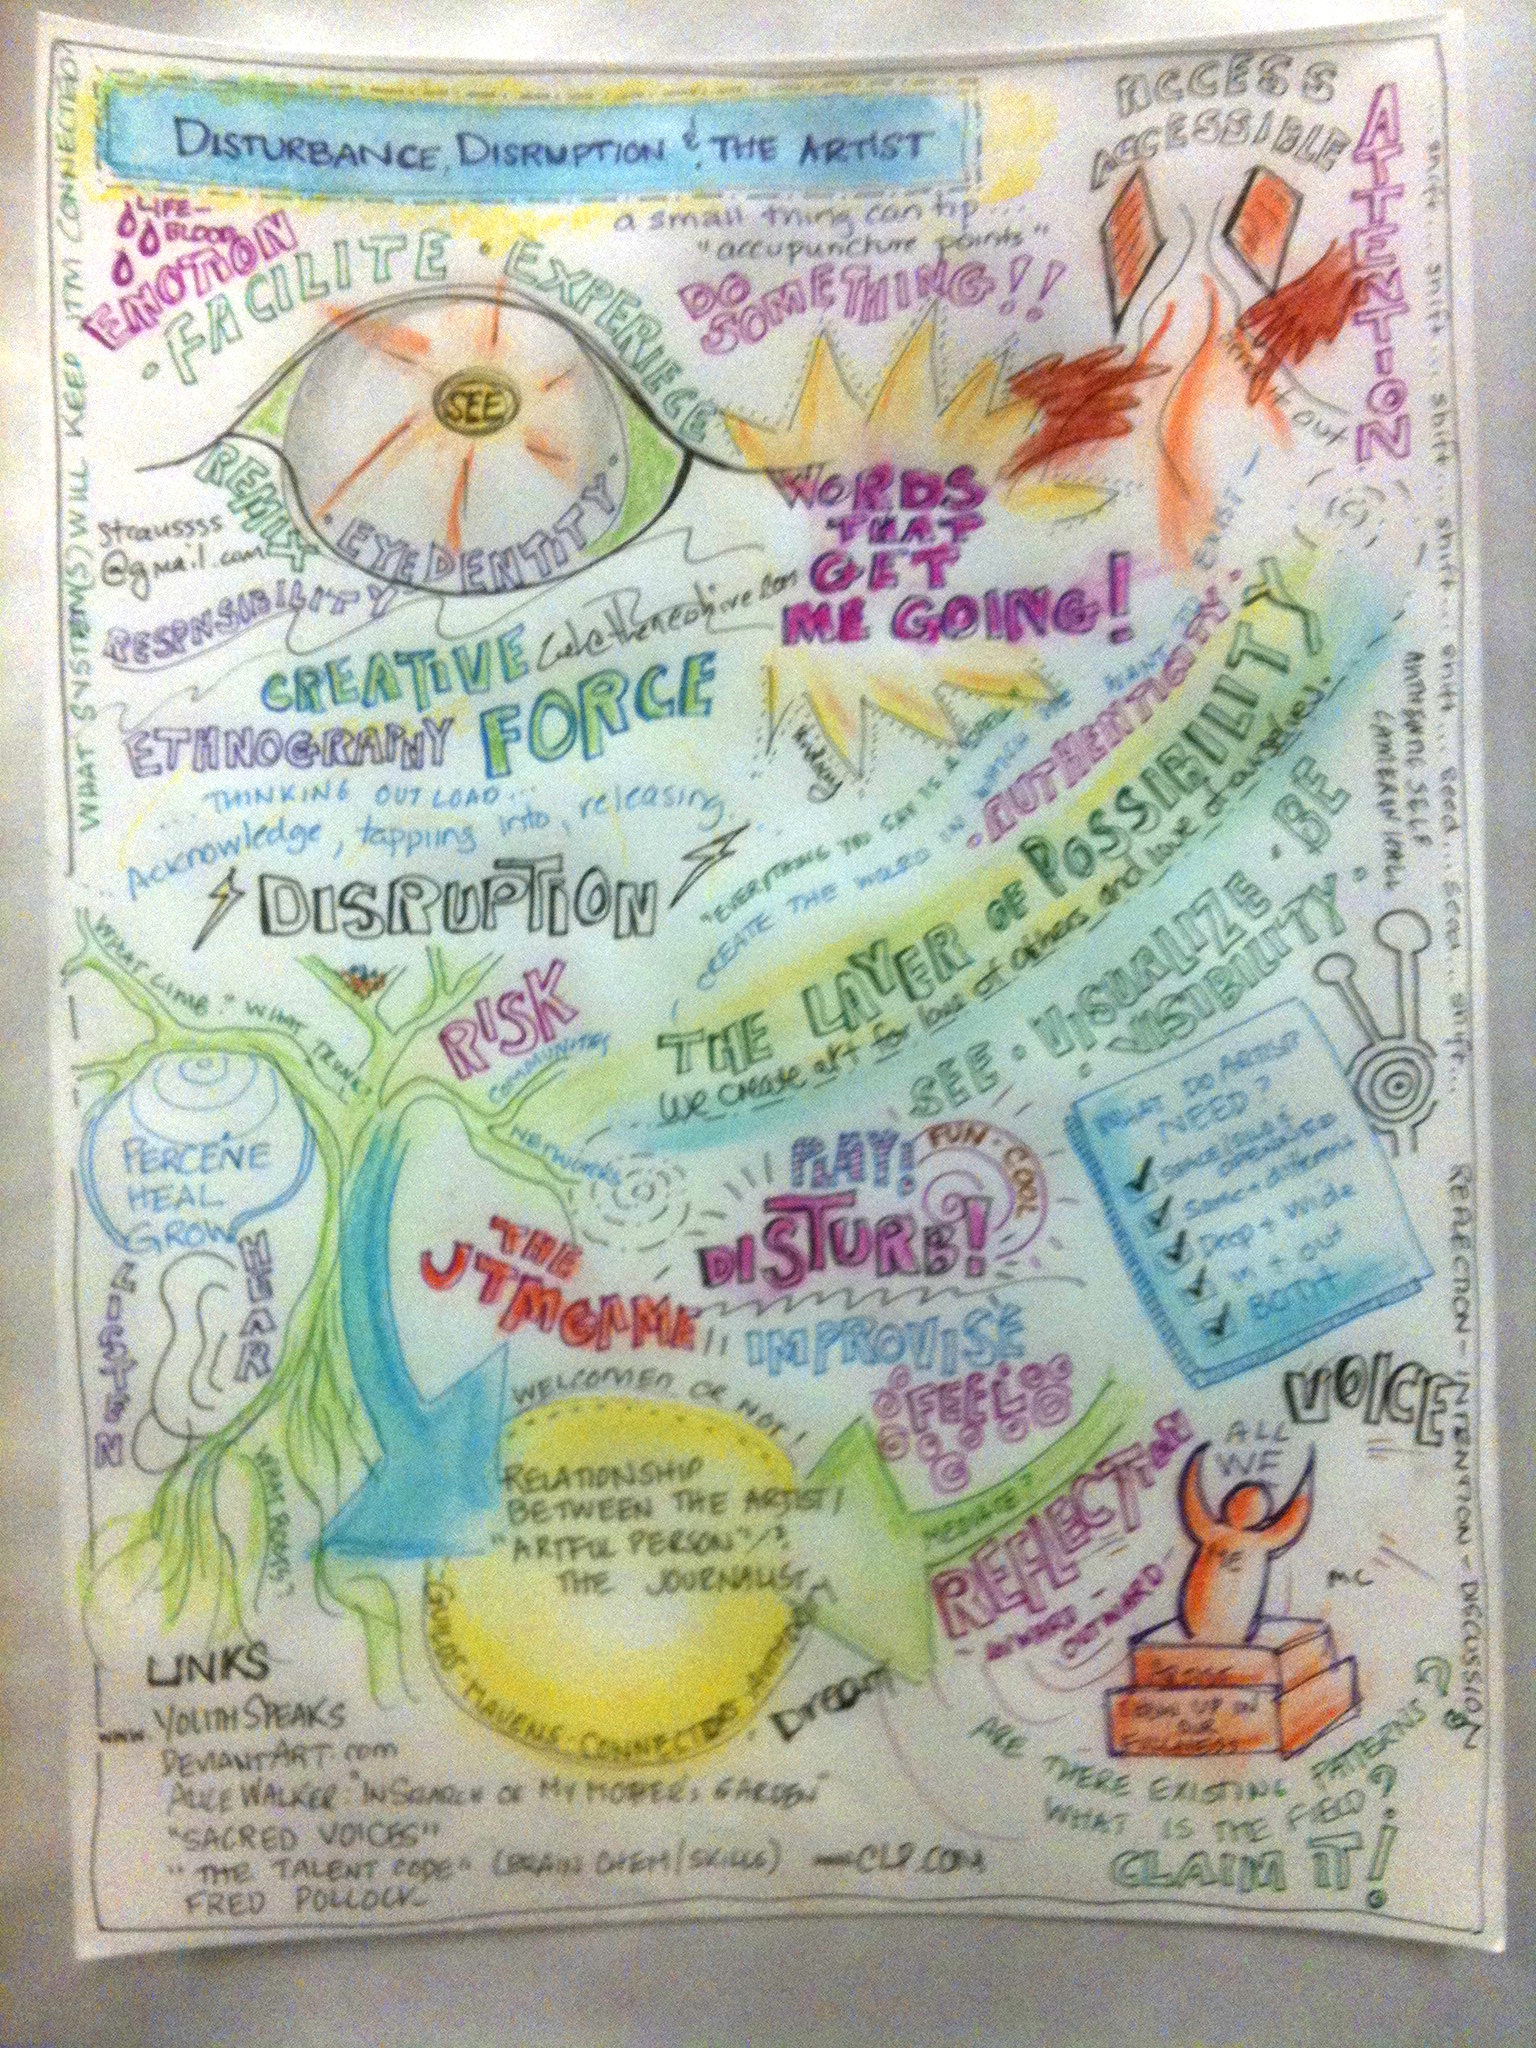 DISTURBANCE, DISRUPTION & THE ARTIST
WHAT SYSTEM(S) WILL KEEP ITM CONNECTED?
LIFE-
BLOOD
EMOTION
· FACILITE · EXPERIECE
a small thing can tip...
"accupuncture points"
DO
SOMETHING!!
ACCESS
ACCESSIBLE
ATTENTION
SEE
REMIX
· EYEDENTITY ·
straussss
@gmail.com
RESPNSIBILITY
WORDS
THAT
GET
ME GOING!
it out
shift... shift... shift... shift... shift... shift... shift... seed... seed... shift...
CREATIVE
FORCE
ETHNOGRAPHY
... THINKING OUT LOAD...
... Acknowledge, tapping into, releasing...
DISRUPTION
"EVERYTHING YOU SAY IS A
CREATE THE WORLD IN WHICH WE WANT TO EXIST -
· AUTHENTICITY ·
THE LAYER OF POSSIBILITY
We create art for love of others and love of ourselves.
SEE · VISUALIZE · BE
· VISIBILITY ·
AUTHENTIC SELF
CAMERIN WALL
WHAT LIMB? WHAT TRUNK?
RISK
COMMUNITIES
NETWORKS
PERCEIVE
HEAL
GROW
HEAR
LISTEN
WHAT ROOTS?
PLAY!
FUN · COOL
DISTURB!
THE
UTMGAME
IMPROVISE
FEEL
WHAT DO ARTIST
NEED?
SPACE/ISSUES
OPENNED
Same + different
Deep + Wide
in + out
BOTH
WELCOMED OR NOT!
RELATIONSHIP
BETWEEN THE ARTIST/
"ARTFUL PERSON"/?
THE JOURNALIST
GUILDS · MAVENS · CONNECTORS ·
MEDIATE?
REFLECTION
INWARD -
OUTWARD -
VOICE
ALL
WE
ME
MC
UP IN
OUR
FULLNESS
REFLECTION - INTENTION - DISCUSSION
ARE THERE EXISTING PATTERNS
WHAT IS THE FIELD?
CLAIM IT!
LINKS
www. YOUTHSPEAKS
DEVIANTART.com
ALICE WALKER: "INSEARCH OF MY MOTHER'S GARDEN"
"SACRED VOICES"
"THE TALENT CODE" (BRAIN CHEM/SKILLS)
FRED POLLOCK